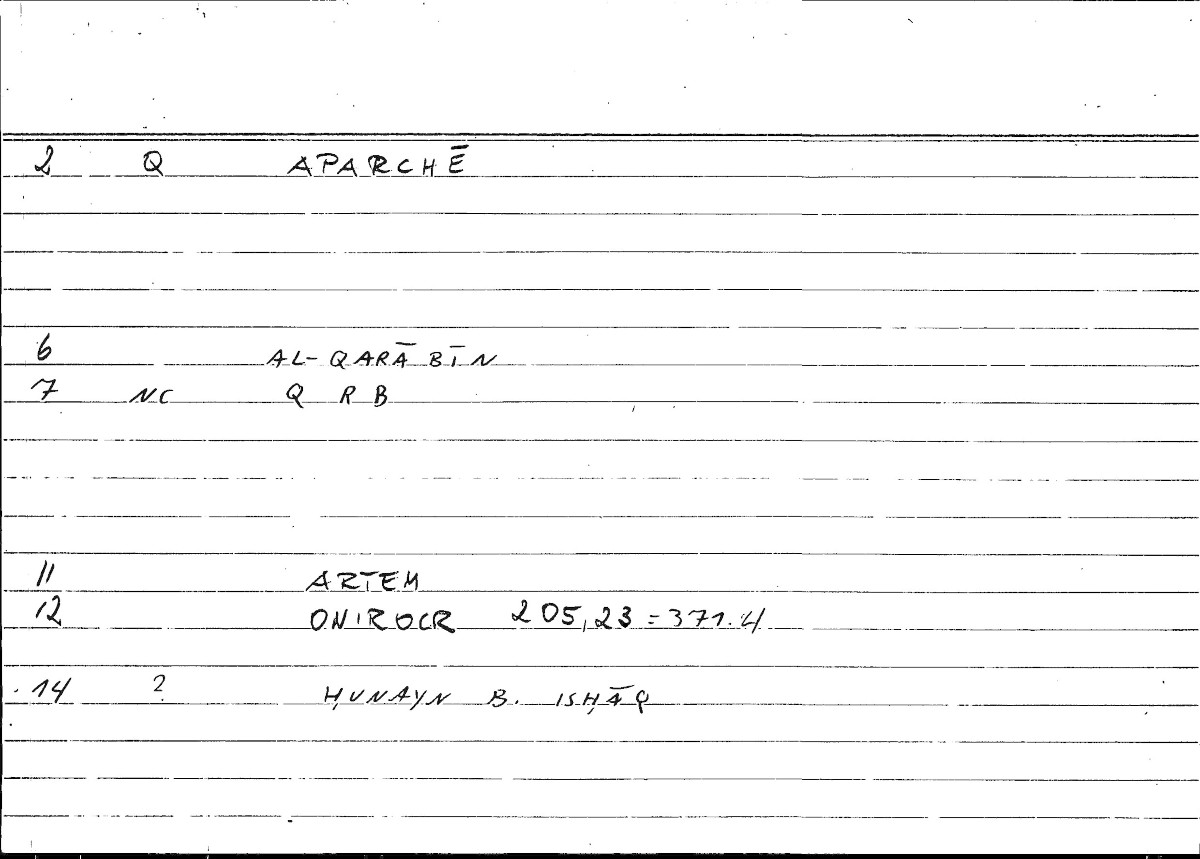 2 Q APARCHĒ
6 AL-QARĀBĪN
7 NC Q R B
11 ARTEM
12 ONIROCR 205,23=371.4
14 ? ḤUNAYN B. ISḤĀQ